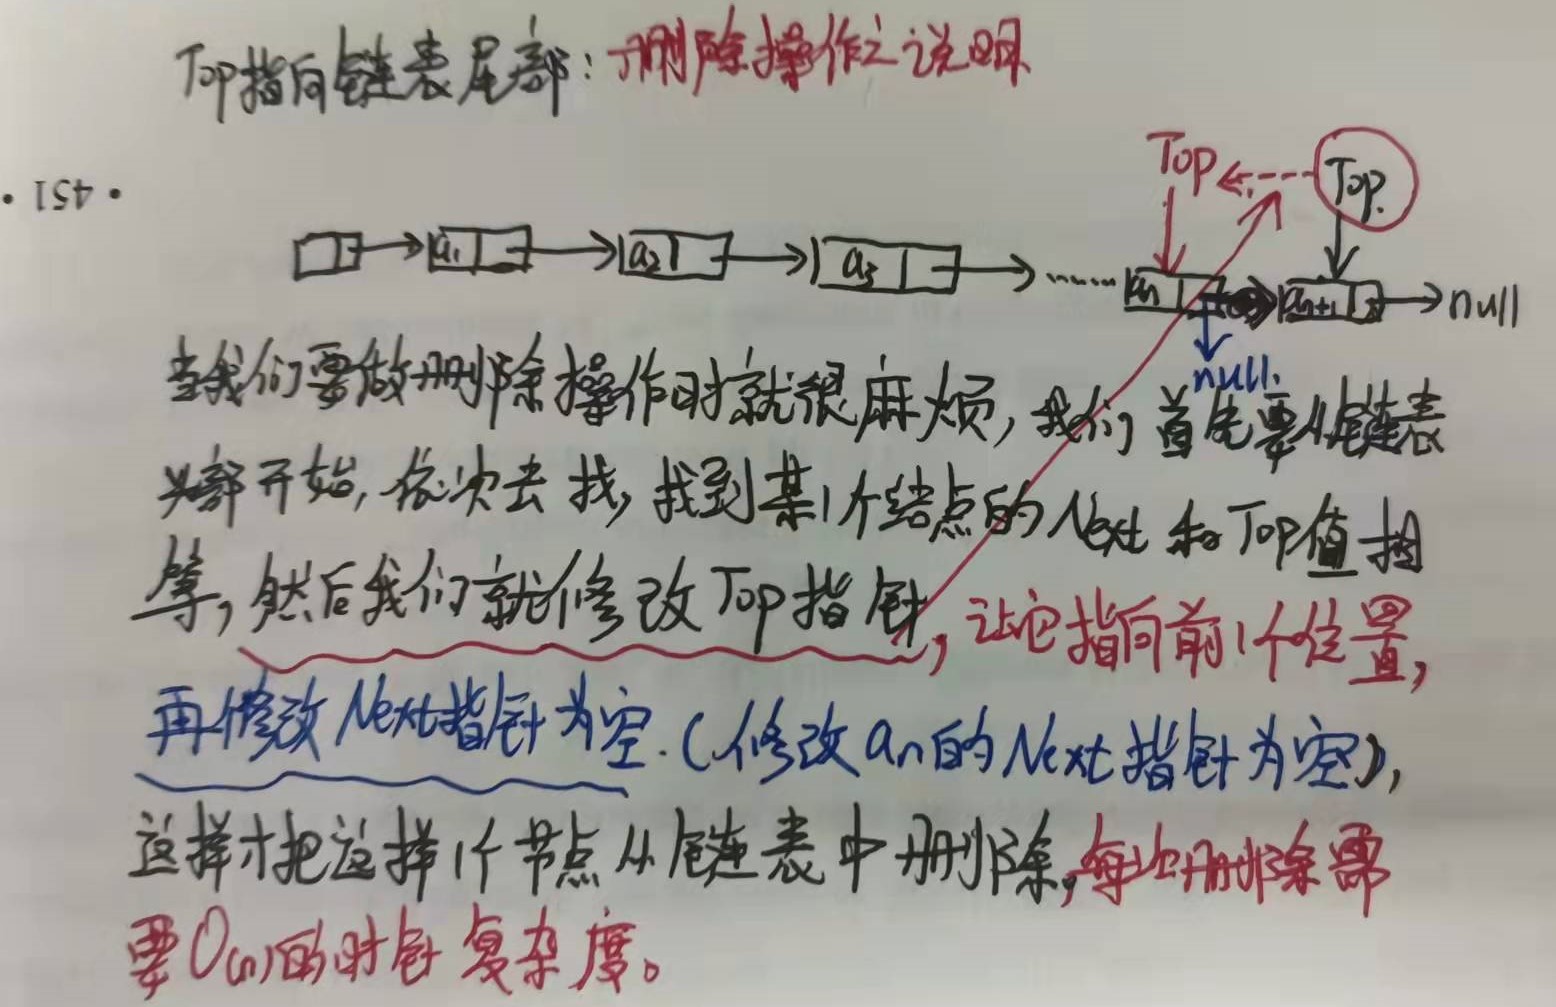 Top指向链表尾部：删除操作之说明
· 451 ·
Top Top.
a1 a2 a3 …… an an+1 null
null.
当我们要做删除操作时就很麻烦，我们首先要从链表
头部开始，依次去找，找到某1个结点的Next和Top值相
等，然后我们就修改Top指针，让它指向前1个位置，
再修改Next指针为空.（修改an的Next指针为空），
这样才把这样1个节点从链表中删除，每次删除需
要O(n)的时针复杂度。